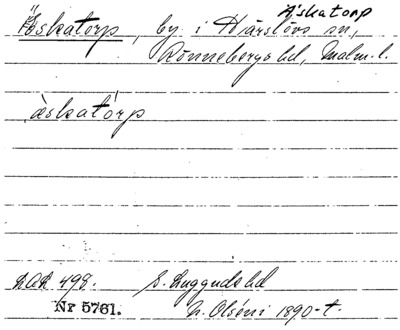 Äskatorp
Äskatorp, by i Härslövs sn,
Rönnebergs hd, Malm. l.
àskatórp
LAL 498. S. Luggude hd
Nr 5761. N. Olséni 1890-t.